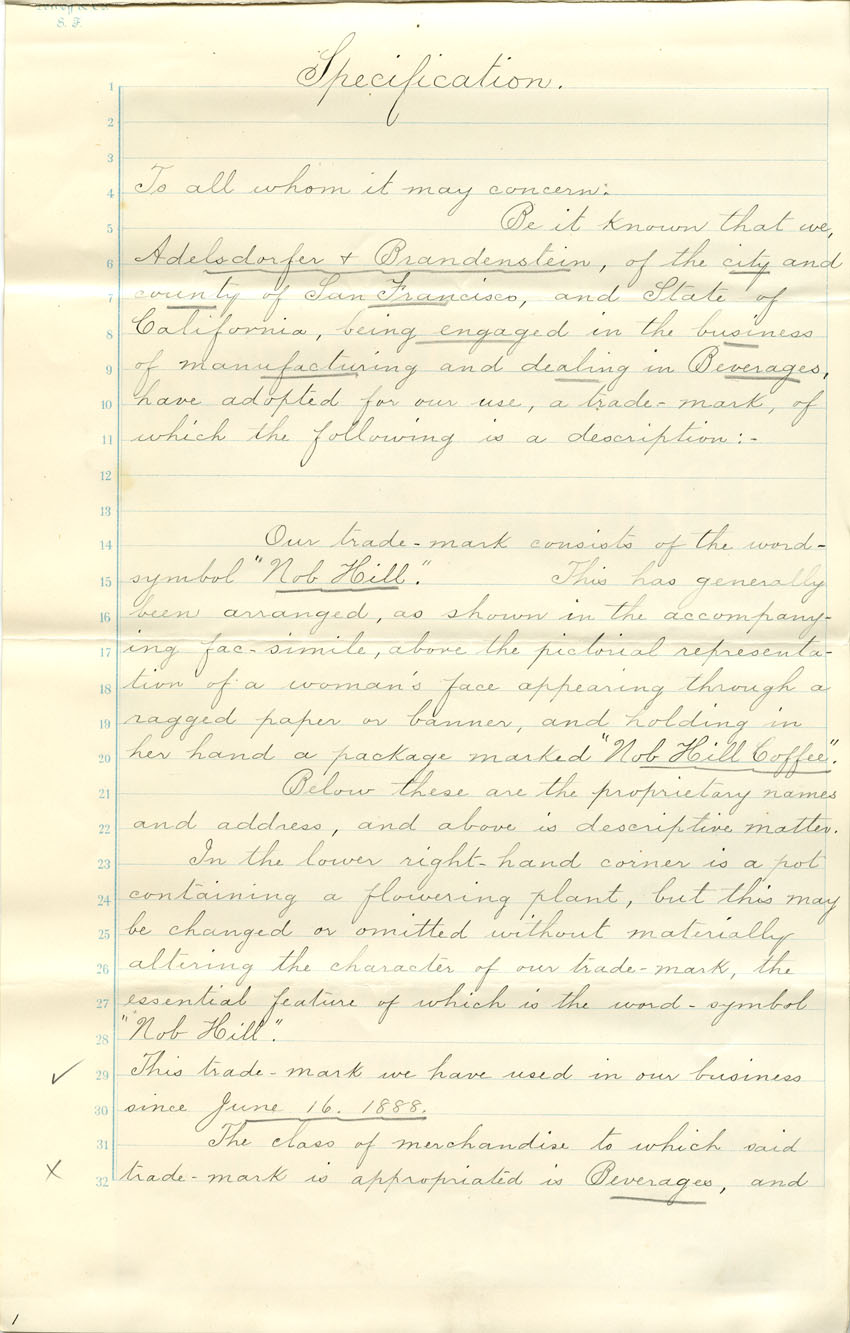 S. F.
Specification.
1
2
3
4 To all whom it may concern:
5 Be it known that we,
6 Adelsdorfer & Brandenstein, of the city and
7 county of San Francisco, and State of
8 California, being engaged in the business
9 of manufacturing and dealing in Beverages,
10 have adopted for our use, a trade-mark, of
11 which the following is a description:-
12
13
14 Our trade-mark consists of the word-
15 symbol "Nob Hill". This has generally
16 been arranged, as shown in the accompany-
17 ing fac-simile, above the pictorial representa-
18 tion of a woman's face appearing through a
19 ragged paper or banner, and holding in
20 her hand a package marked "Nob Hill Coffee".
21 Below these are the proprietary names
22 and address, and above is descriptive matter.
23 In the lower right-hand corner is a pot
24 containing a flowering plant, but this may
25 be changed or omitted without materially
26 altering the character of our trade-mark, the
27 essential feature of which is the word-symbol
28 "Nob Hill".
29 This trade-mark we have used in our business
30 since June 16. 1888.
31 The class of merchandise to which said
32 trade-mark is appropriated is Beverages, and
1